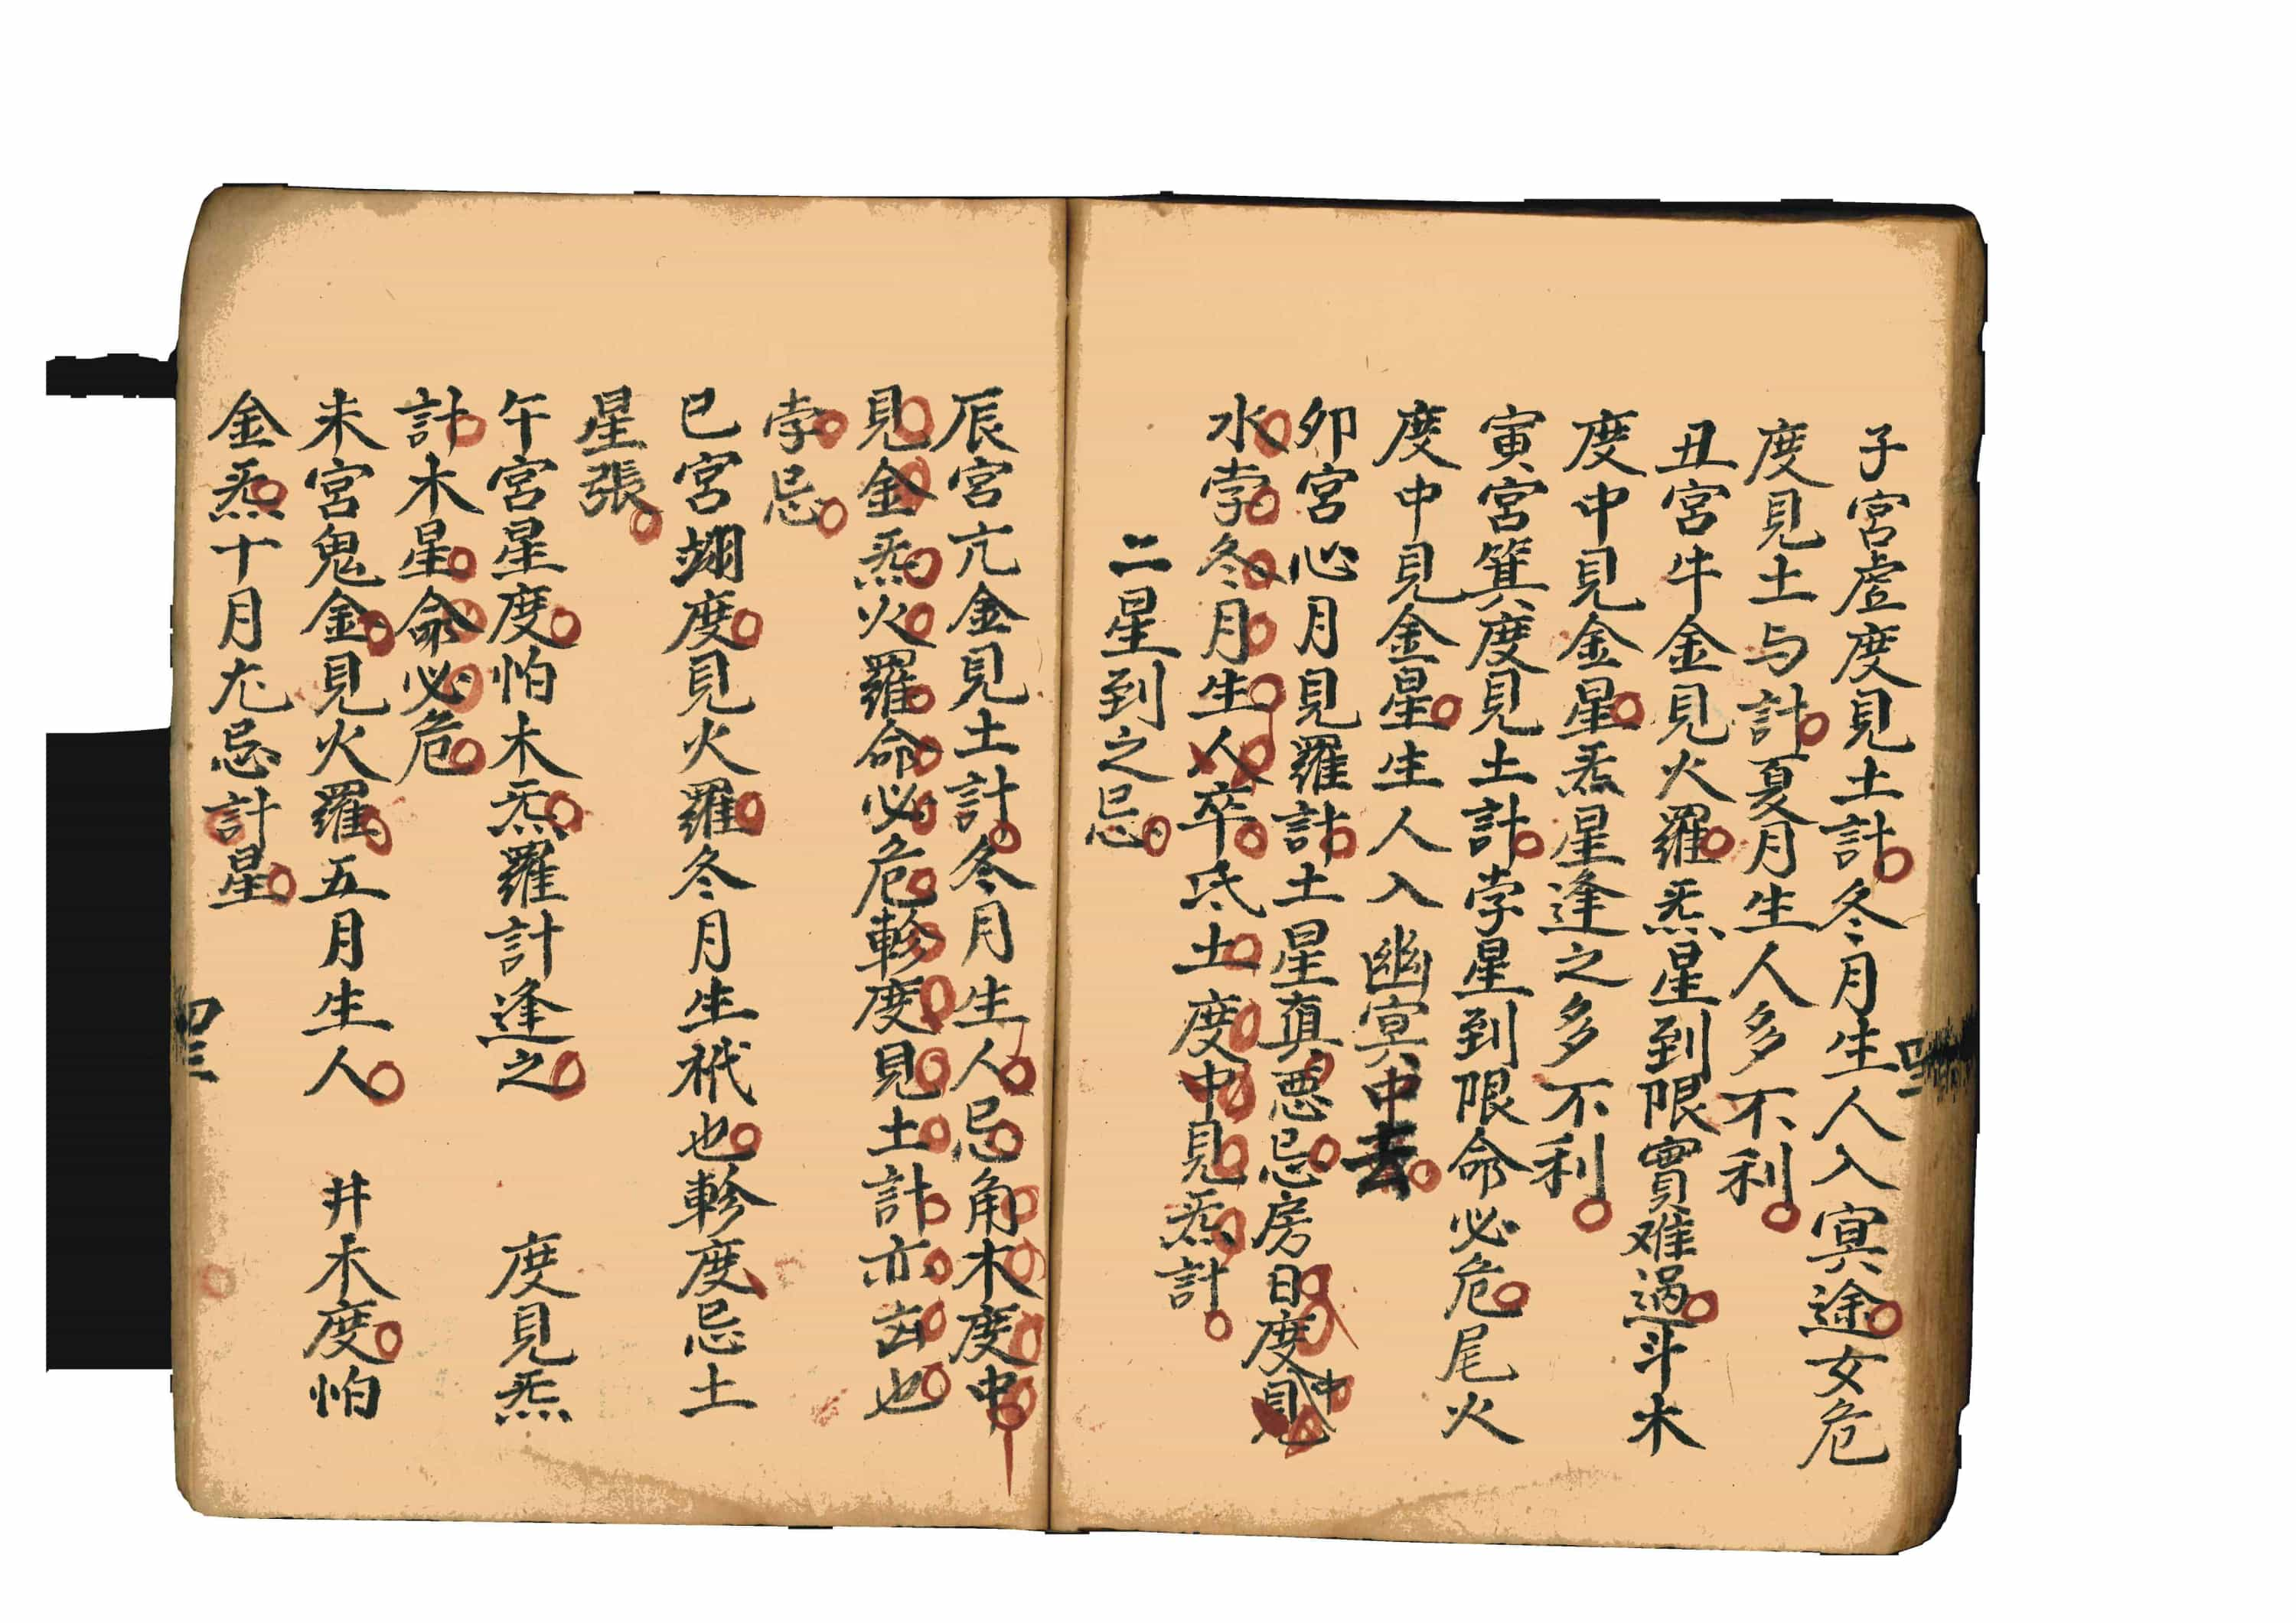 子宮虛度見土計冬月生人入冥途女危
度見土与計夏月生人多不利
丑宮牛金見火羅炁星到限實难過斗木
度中見金星炁星逢之多不利
寅宮箕度見土計孛星到限命必危尾火
度中見金星生人入幽冥中去
卯宮心月見羅計土星真惡忌房日度中見
水孛冬月生人卒氐土度中見炁計
二星到之忌
辰宮亢金見土計冬月生人忌角木度中
見金炁火羅命必危軫度見土計亦凶也
孛忌
巳宮翊度見火羅冬月生祇也軫度忌土
星張
午宮星度怕木炁羅計逢之 度見炁
計木星命必危
未宮鬼金見火羅五月生人 井木度怕
金炁十月尤忌計星